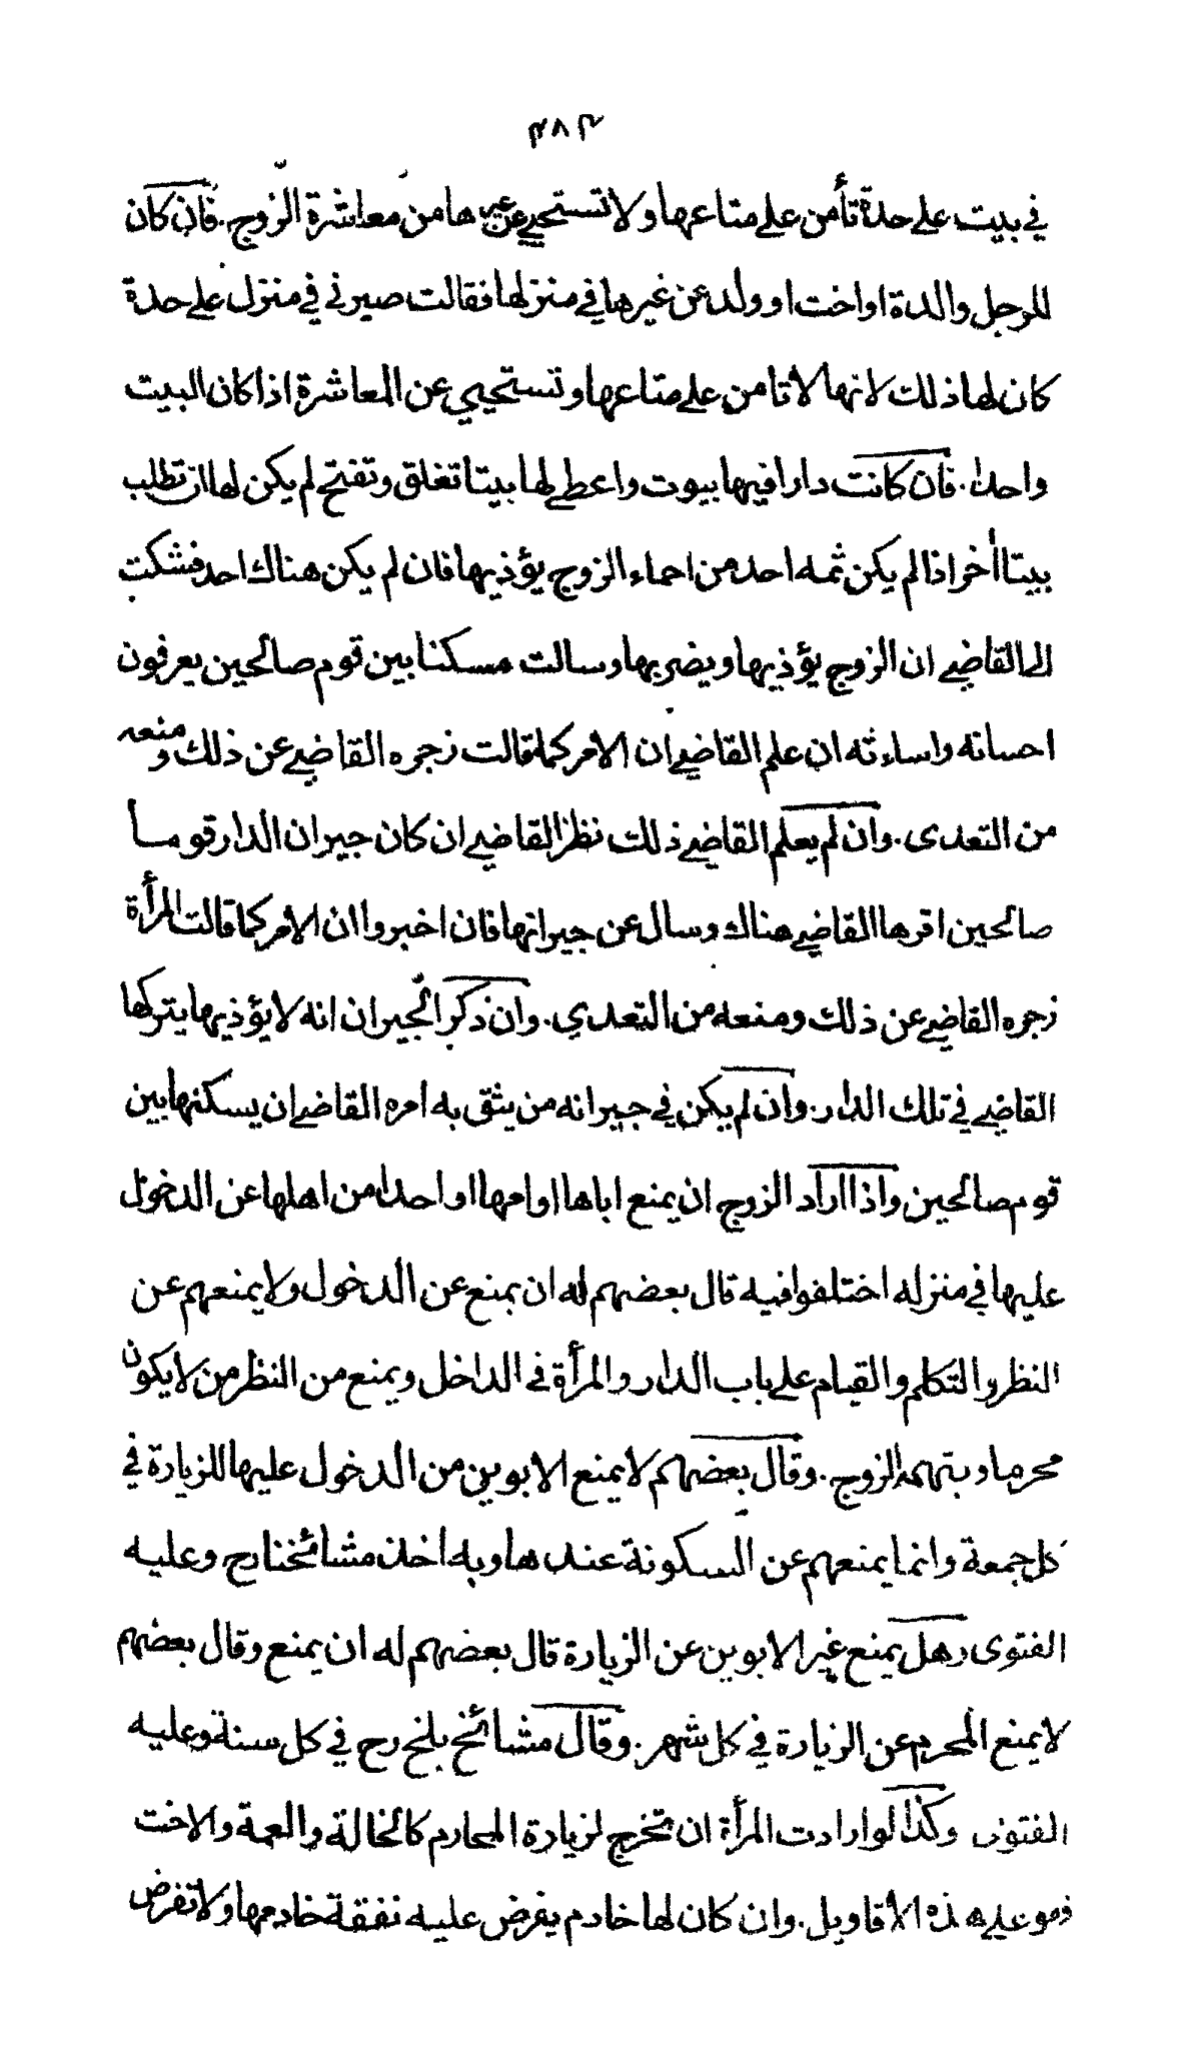 ٣٨٣
في بيت على حدة تأمن على متاعها ولا تستحيي عن غيرها من معاشرة الزوج. فان كان
للرجل والدة او اخت او ولد عن غيرها في منزلها فقالت صيرني في منزل على حدة
كان لها ذلك لانها لا تامن على متاعها وتستحيي عن المعاشرة اذا كان البيت
واحدا. فان كانت دارا فيها بيوت واعطى لها بيتا تغلق وتفتح لم يكن لها ان تطلب
بيتا أخر اذا لم يكن ثمه احد من احماء الزوج يؤذيها فان لم يكن هناك احد فشكت
الى القاضي ان الزوج يؤذيها ويضربها وسالت مسكنا بين قوم صالحين يعرفون
احسانه واساءته ان علم القاضي ان الامر كما قالت زجره القاضي عن ذلك ومنعه
من التعدى. وان لم يعلم القاضي ذلك نظر القاضي ان كان جيران الدار قوما
صالحين اقرها القاضي هناك وسال عن جيرانها فان اخبروا ان الامر كما قالت المرأة
زجره القاضي عن ذلك ومنعه من التعدي. وان ذكر الجيران انه لا يؤذيها يتركها
القاضي في تلك الدار. وان لم يكن في جيرانه من يثق به امره القاضي ان يسكنها بين
قوم صالحين واذا اراد الزوج ان يمنع اباها او امها او احدا من اهلها عن الدخول
عليها في منزله اختلفوا فيه قال بعضهم له ان يمنع عن الدخول ولا يمنعهم عن
النظر والتكلم والقيام على باب الدار والمرأة في الداخل ويمنع من النظر من لا يكون
محرما ويتهمه الزوج. وقال بعضهم لا يمنع الابوين من الدخول عليها للزيارة في
كل جمعة وانما يمنعهم عن السكونة عندها وبه اخذ مشائخنا رح وعليه
الفتوى وهل يمنع غير الابوين عن الزيارة قال بعضهم له ان يمنع وقال بعضهم
لا يمنع المحرم عن الزيارة في كل شهر. وقال مشائخ بلخ رح في كل سنة وعليه
الفتوى وكذا لو ارادت المرأة ان تخرج لزيارة المحارم كالخالة والعمة والاخت
فهو على هذه الاقاويل. وان كان لها خادم يفرض عليه نفقة خادمها ولا تفرض